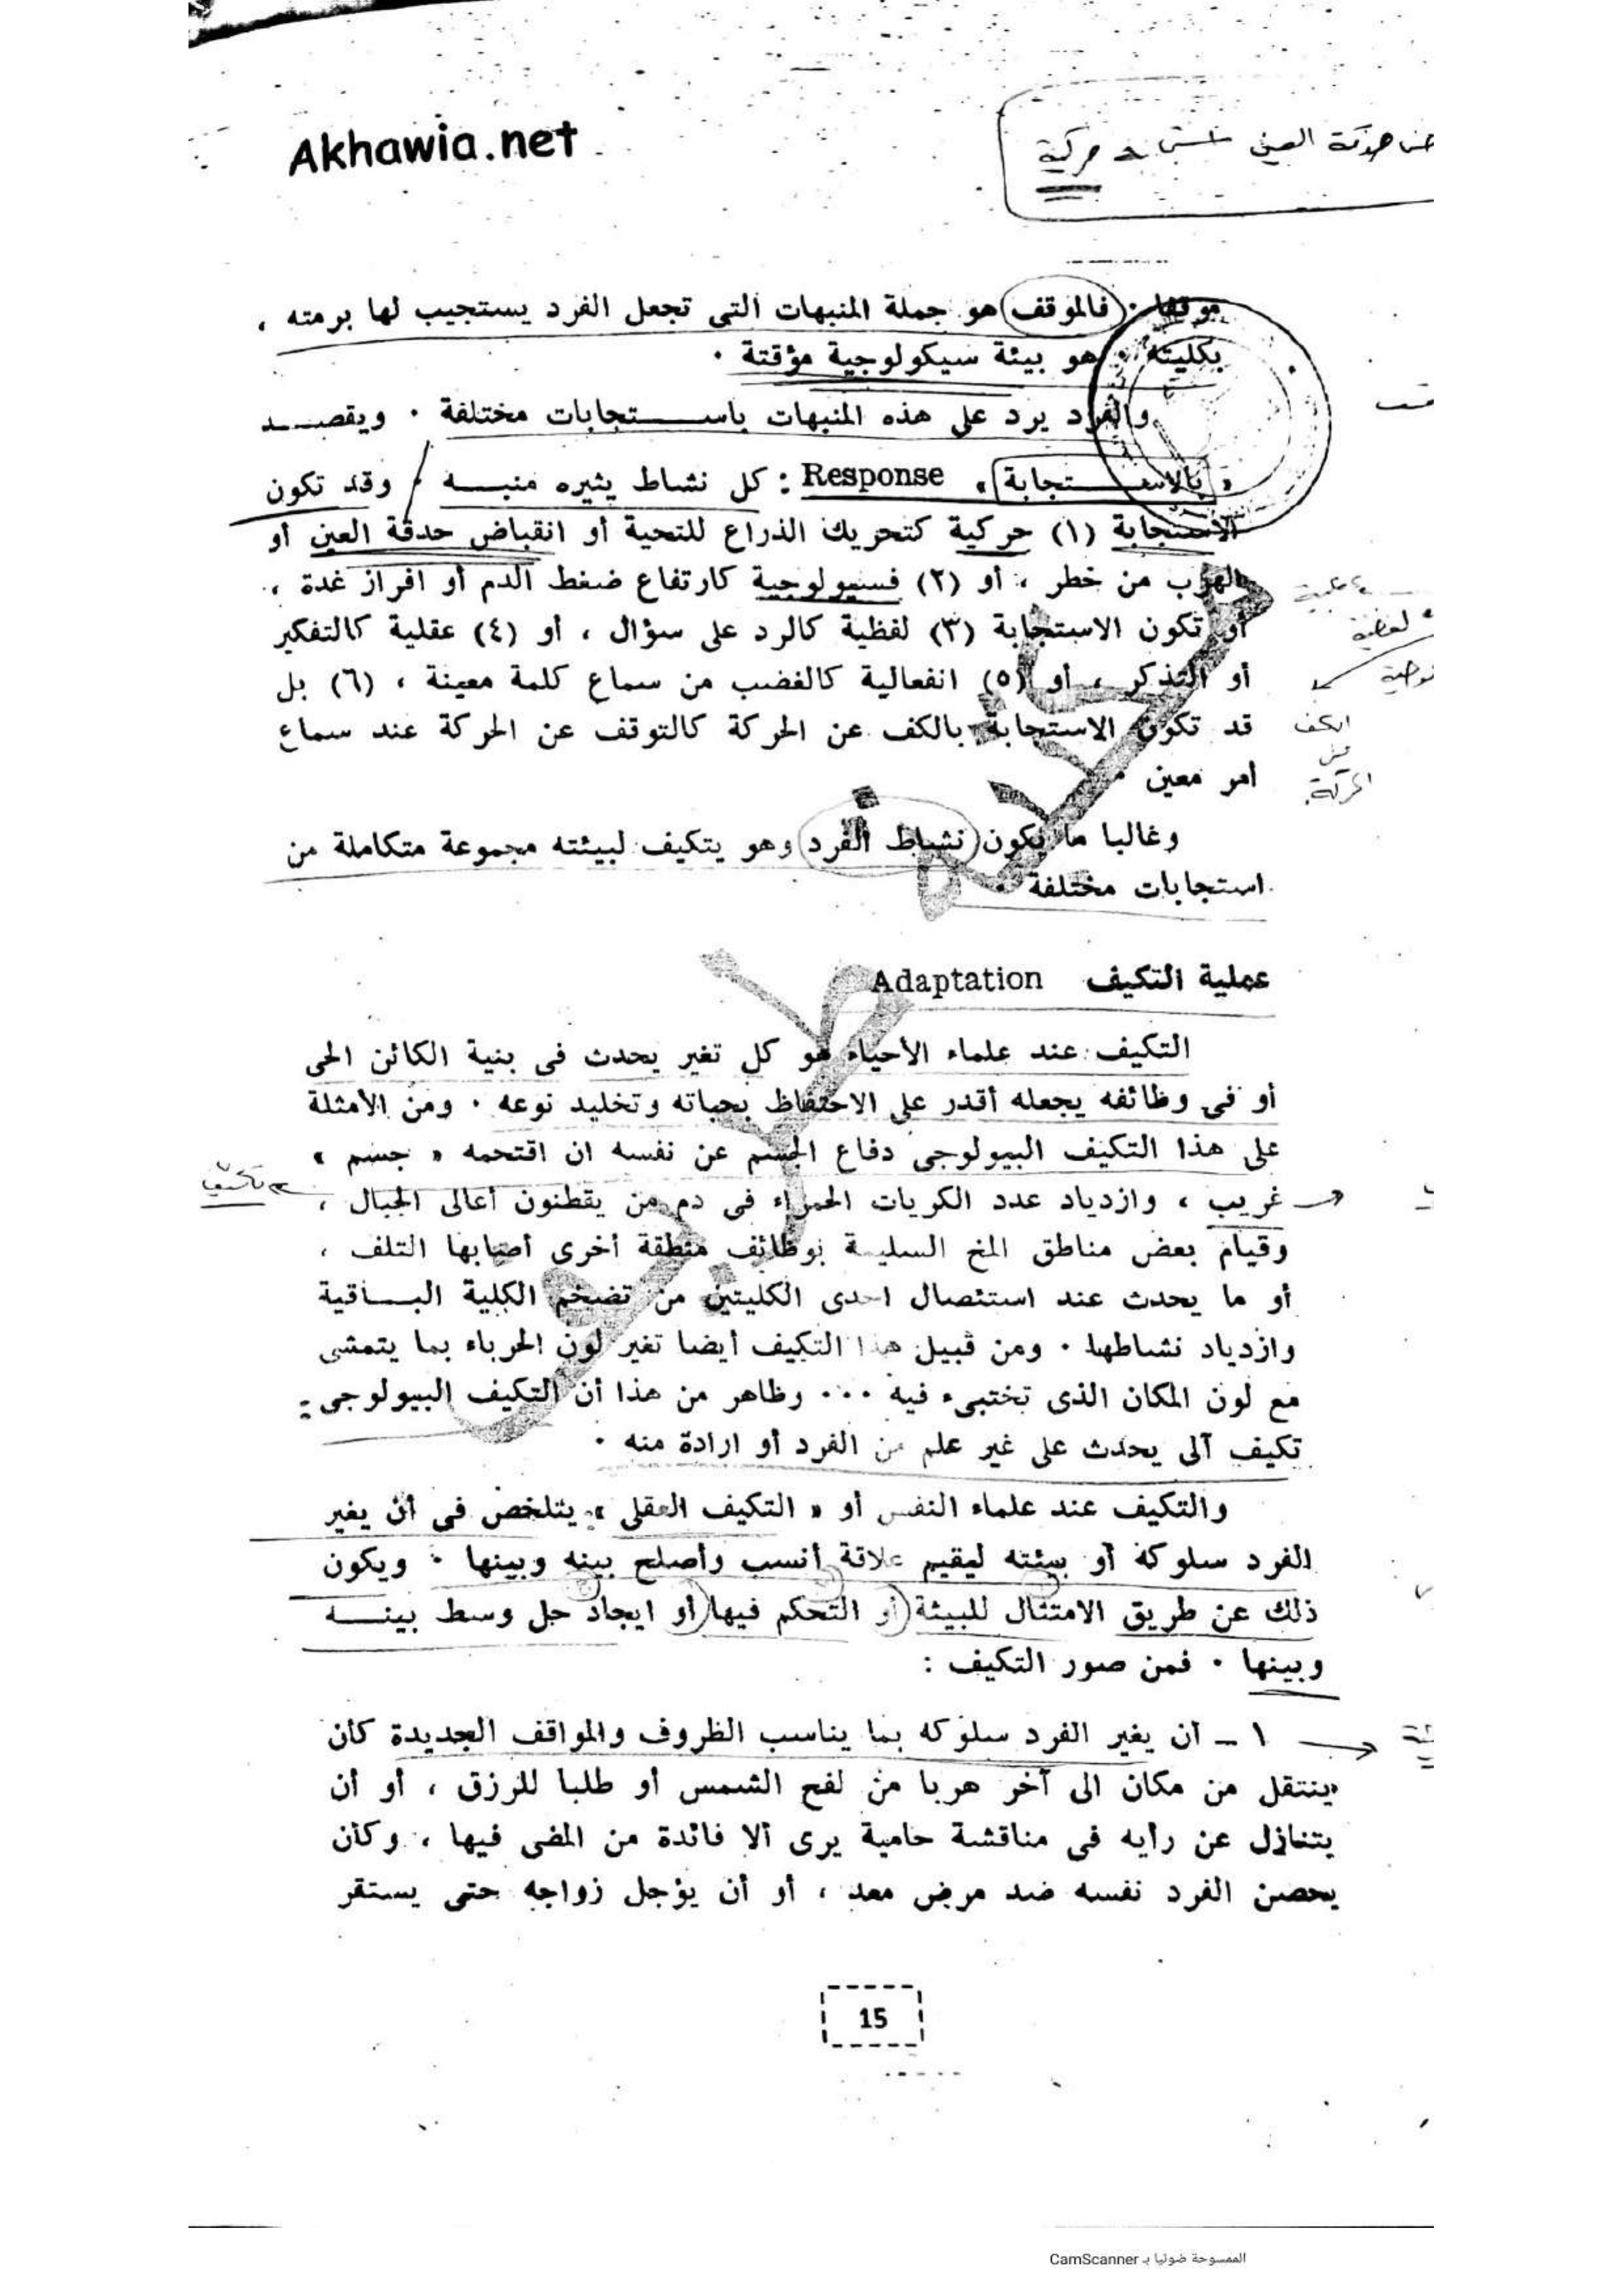 Akhawia.net
حدقة العين
حركية
موقفا · فالموقف هو جملة المنبهات التى تجعل الفرد يستجيب لها برمته ،
بكليته · هو بيئة سيكولوجية مؤقتة ·
والفرد يرد على هذه المنبهات باستجابات مختلفة · ويقصد
« بالاستجابة » Response : كل نشاط يثيره منبه · وقد تكون
الاستجابة (١) حركية كتحريك الذراع للتحية أو انقباض حدقة العين أو
الهرب من خطر ، أو (٢) فسيولوجية كارتفاع ضغط الدم أو افراز غدة ،
أو تكون الاستجابة (٣) لفظية كالرد على سؤال ، أو (٤) عقلية كالتفكير
أو التذكر ، أو (٥) انفعالية كالغضب من سماع كلمة معينة ، (٦) بل
قد تكون الاستجابة بالكف عن الحركة كالتوقف عن الحركة عند سماع
امر معين ·
لفظية
الكف
عن
الحركة
وغالبا ما يكون نشاط الفرد وهو يتكيف لبيئته مجموعة متكاملة من
استجابات مختلفة ·
عملية التكيف Adaptation
التكيف عند علماء الأحياء هو كل تغير يحدث فى بنية الكائن الحى
أو فى وظائفه يجعله أقدر على الاحتفاظ بحياته وتخليد نوعه · ومن الأمثلة
على هذا التكيف البيولوجى دفاع الجسم عن نفسه ان اقتحمه « جسم »
غريب ، وازدياد عدد الكريات الحمراء فى دم من يقطنون أعالى الجبال ،
وقيام بعض مناطق المخ السليمة بوظائف منطقة أخرى أصابها التلف ،
أو ما يحدث عند استئصال احدى الكليتين من تضخم الكلية الباقية
وازدياد نشاطها · ومن قبيل هذا التكيف أيضا تغير لون الحرباء بما يتمشى
مع لون المكان الذى تختبىء فيه ··· وظاهر من هذا أن التكيف البيولوجى :
تكيف آلى يحدث على غير علم من الفرد أو ارادة منه ·
والتكيف عند علماء النفس أو « التكيف العقلى » يتلخص فى أن يغير
الفرد سلوكه أو بيئته ليقيم علاقة أنسب وأصلح بينه وبينها · ويكون
ذلك عن طريق الامتثال للبيئة أو التحكم فيها أو ايجاد حل وسط بينه
وبينها · فمن صور التكيف :
١ – أن يغير الفرد سلوكه بما يناسب الظروف والمواقف الجديدة كأن
ينتقل من مكان الى آخر هربا من لفح الشمس أو طلبا للرزق ، أو أن
يتنازل عن رأيه فى مناقشة حامية يرى ألا فائدة من المضى فيها ، وكأن
يحصن الفرد نفسه ضد مرض معد ، أو أن يؤجل زواجه حتى يستقر
15
الممسوحة ضوئيا بـ CamScanner